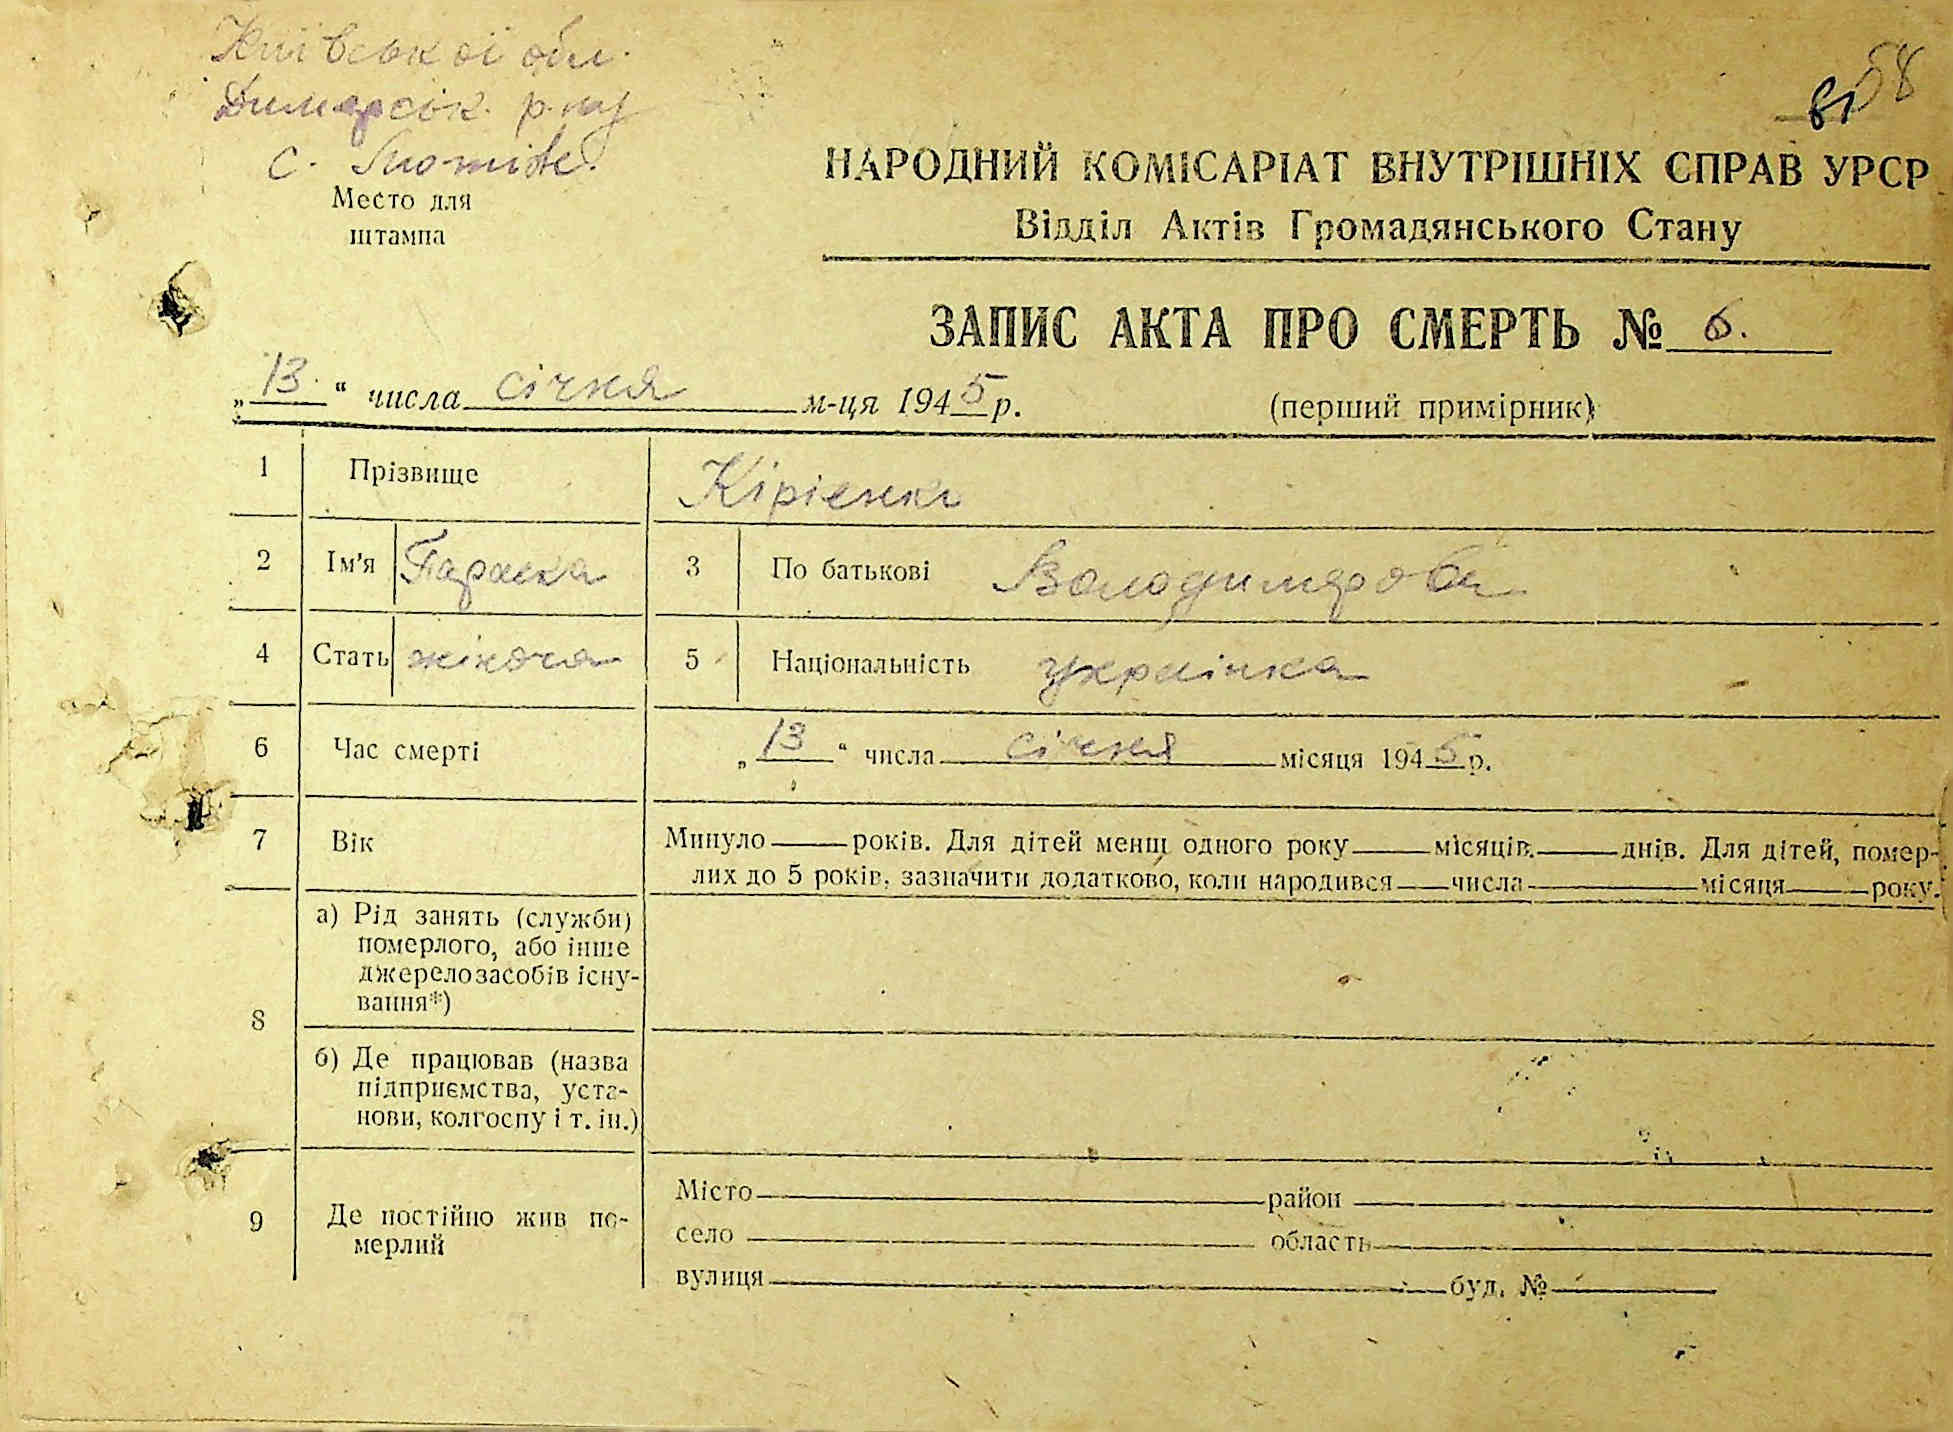 Київської обл.
Димерськ. р-ну
с.
81 58
Место для
штампа
НАРОДНИЙ КОМІСАРІАТ ВНУТРІШНІХ СПРАВ УРСР
Відділ Актів Громадянського Стану
ЗАПИС АКТА ПРО СМЕРТЬ № 6.
„13“ числа січня м-ця 1945 р.
(перший примірник)
1 Прізвище Кірієнко
2 Ім'я Параска 3 По батькові Володимирова
4 Стать жіноча 5 Національність українка
6 Час смерті „13“ числа січня місяця 1945 р.
7 Вік Минуло ___ років. Для дітей менш одного року ___ місяців. ___ днів. Для дітей, помер-
лих до 5 років, зазначити додатково, коли народився ___ числа ___ місяця ___ року.
8
а) Рід занять (служби)
померлого, або інше
джерело засобів існу-
вання*)
б) Де працював (назва
підприємства, уста-
нови, колгоспу і т. ін.)
9 Де постійно жив по-
мерлий
Місто ___ район ___
село ___ область ___
вулиця ___ буд. № ___